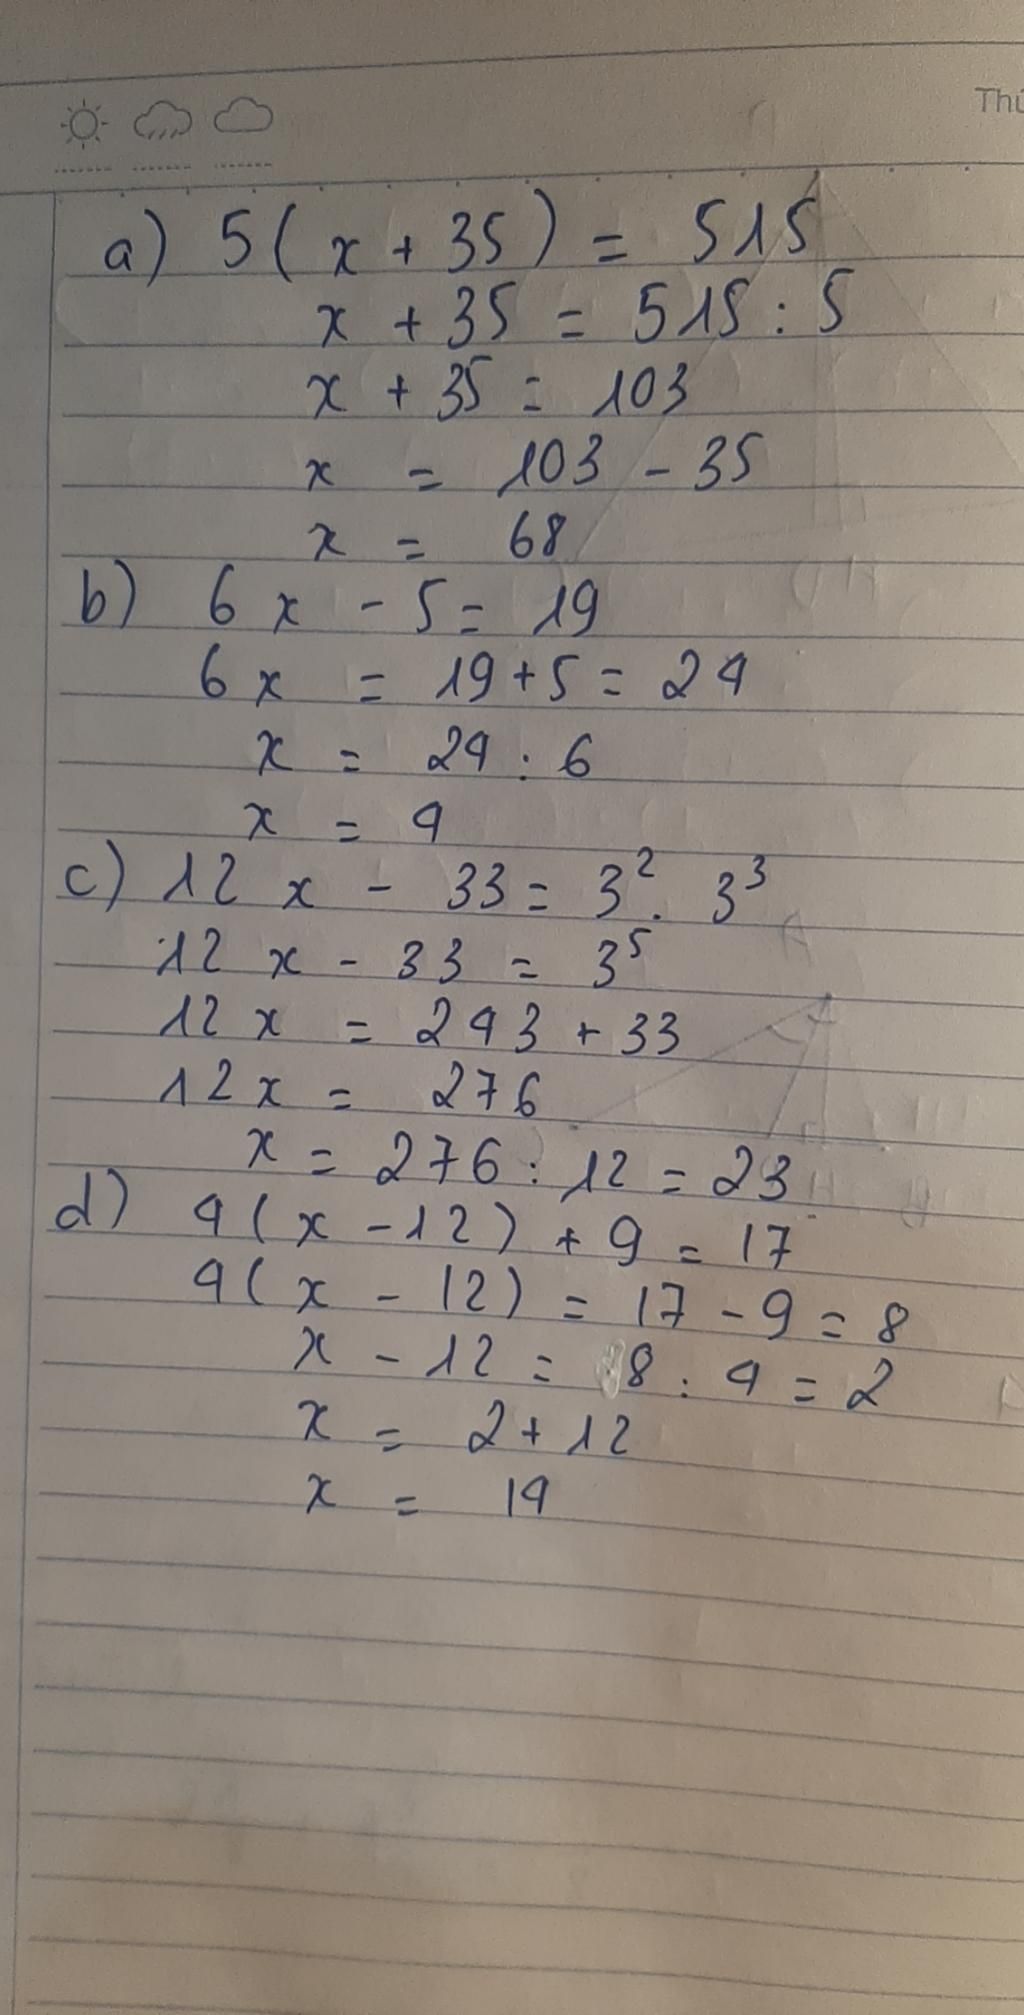 Thứ
a) 5(x + 35) = 515
x + 35 = 515 : 5
x + 35 = 103
x = 103 - 35
x = 68
b) 6x - 5 = 19
6x = 19 + 5 = 24
x = 24 : 6
x = 4
c) 12x - 33 = 3². 3³
12x - 33 = 3⁵
12x = 243 + 33
12x = 276
x = 276 : 12 = 23
d) 4(x - 12) + 9 = 17
4(x - 12) = 17 - 9 = 8
x - 12 = 8 : 4 = 2
x = 2 + 12
x = 14